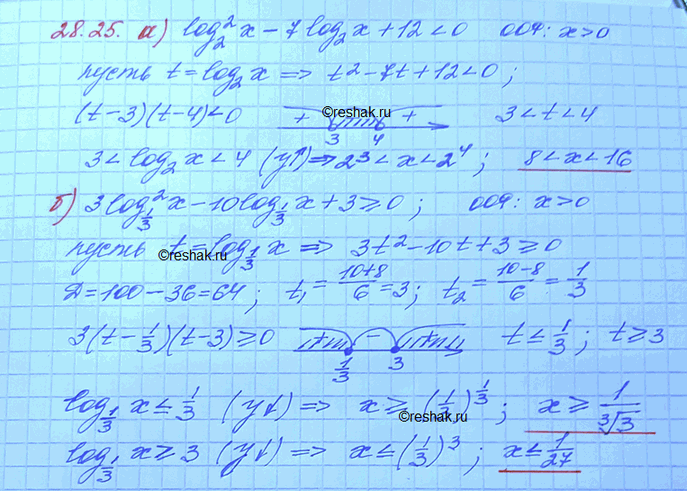 28.25. а) log₂² x − 7 log₂ x + 12 < 0   ООН: x > 0
пусть t = log₂ x ⟹ t² − 7t + 12 < 0 ;
(t − 3)(t − 4) < 0   + 3 4 +   3 < t < 4
©reshak.ru
3 < log₂ x < 4 (y↑) ⟹ 2³ < x < 2⁴ ; 8 < x < 16
б) 3 log²_{1/3} x − 10 log_{1/3} x + 3 ⩾ 0 ;   ООН: x > 0
пусть t = log_{1/3} x ⟹ 3t² − 10t + 3 ⩾ 0
©reshak.ru
Д = 100 − 36 = 64 ; t₁ = (10+8)/6 = 3 ; t₂ = (10−8)/6 = 1/3
3(t − 1/3)(t − 3) ⩾ 0   + 1/3 − 3 +   t ⩽ 1/3 ; t ⩾ 3
log_{1/3} x ⩽ 1/3 (y↓) ⟹ x ⩾ (1/3)^{1/3} ; x ⩾ 1/∛3
©reshak.ru
log_{1/3} x ⩾ 3 (y↓) ⟹ x ⩽ (1/3)³ ; x ⩽ 1/27